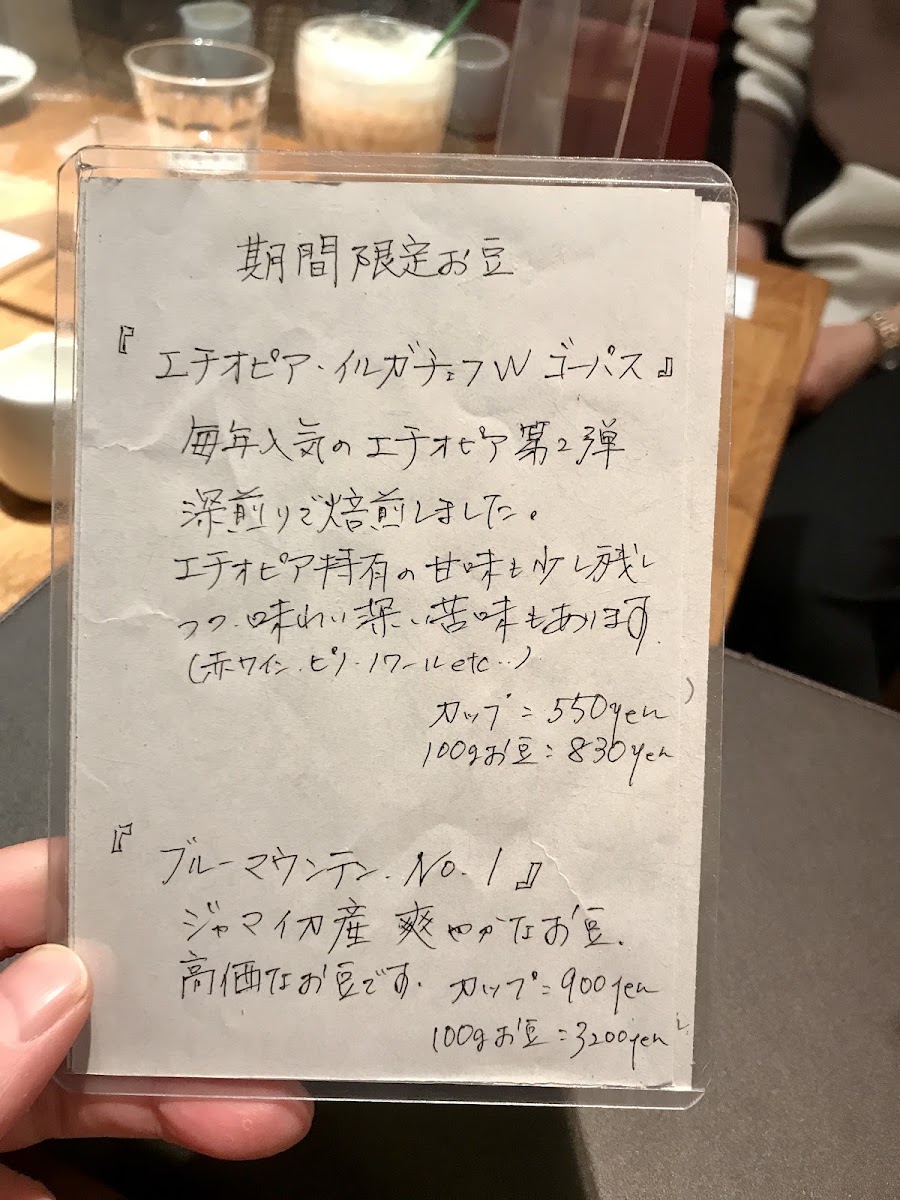 期間限定お豆
『エチオピア・イルガチェフW ゴーパス』
毎年人気のエチオピア第2弾
深煎りで焙煎しました。
エチオピア特有の甘味も少し残し
つつ、味わい深い苦味もあります。
(赤ワイン、ピノ・ノワール etc..)
カップ=550yen
100gお豆=830yen
『ブルーマウンテン.No.1』
ジャマイカ産 爽やかなお豆.
高価なお豆です. カップ=900yen
100gお豆=3200yen